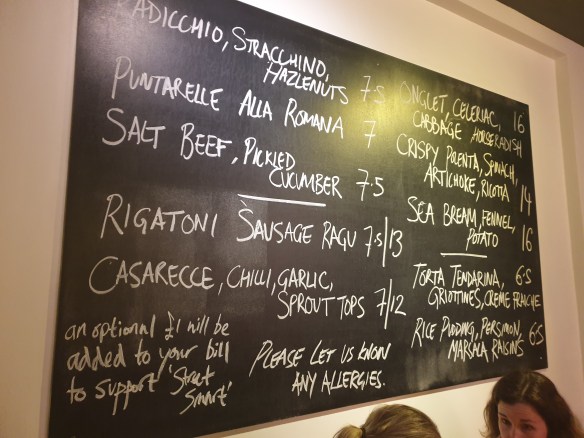 RADICCHIO, STRACCHINO,
HAZLENUTS 7.5
PUNTARELLE ALLA ROMANA 7
SALT BEEF, PICKLED
CUCUMBER 7.5
RIGATONI SAUSAGE RAGU 7.5/13
CASARECCE, CHILLI, GARLIC,
SPROUT TOPS 7/12
an optional £1 will be
added to your bill
to support 'Street
Smart'
PLEASE LET US KNOW
ANY ALLERGIES.
ONGLET, CELERIAC, 16
CABBAGE HORSERADISH
CRISPY POLENTA, SPINACH,
ARTICHOKE, RICOTTA 14
SEA BREAM, FENNEL,
POTATO 16
TORTA TENDARINA, 6.5
GRIOTTINES, CREME FRAICHE
RICE PUDDING, PERSIMON, 6.5
MARSALA RAISINS